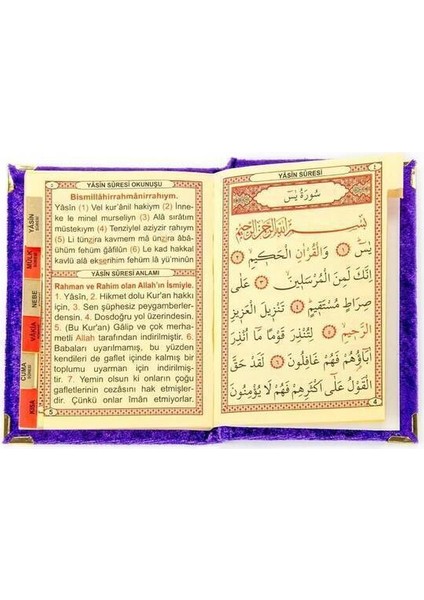 YÂSİN SÛRESİ OKUNUŞU
Bismillâhirrahmânirrahıym.
Yâsîn (1) Vel kur'ânil hakiym (2) İnne-
ke le minel murseliyn (3) Alâ sırâtım
müstekıym (4) Tenziylel aziyzir rahıym
(5) Li tünzira kavmem mâ ünzira âbâ-
ühüm fehüm gâfilûn (6) Le kad hakkal
kavlü alâ ekserihim fehüm lâ yü'minûn
YÂSİN SÛRESİ ANLAMI
Rahman ve Rahim olan Allah'ın İsmiyle.
1. Yâsîn, 2. Hikmet dolu Kur'an hakkı
için, 3. Sen şüphesiz peygamberler-
densin. 4. Dosdoğru yol üzerindesin.
5. (Bu Kur'an) Gâlip ve çok merha-
metli Allah tarafından indirilmiştir. 6.
Babaları uyarılmamış, bu yüzden
kendileri de gaflet içinde kalmış bir
toplumu uyarman için indirilmiş-
tir. 7. Yemin olsun ki onların çoğu
gafletlerinin cezasını hak etmişler-
dir. Çünkü onlar îmân etmiyorlar.
5
YÂSİN
MÜLK
NEBE
VÂKIA
CUMA
KISA
YÂSİN SÛRESİ
سُورَةُ يٰسٓ
بِسْمِ اللّٰهِ الرَّحْمٰنِ الرَّحِيمِ
يٰسٓ ﴿١﴾ وَالْقُرْاٰنِ الْحَكِيمِ ﴿٢﴾
اِنَّكَ لَمِنَ الْمُرْسَلِينَ ﴿٣﴾ عَلٰى
صِرَاطٍ مُسْتَقِيمٍ ﴿٤﴾ تَنْزِيلَ الْعَزِيزِ
الرَّحِيمِ ﴿٥﴾ لِتُنْذِرَ قَوْمًا مَٓا اُنْذِرَ
اٰبَٓاؤُهُمْ فَهُمْ غَافِلُونَ ﴿٦﴾ لَقَدْ حَقَّ
الْقَوْلُ عَلٰٓى اَكْثَرِهِمْ فَهُمْ لَا يُؤْمِنُونَ
4